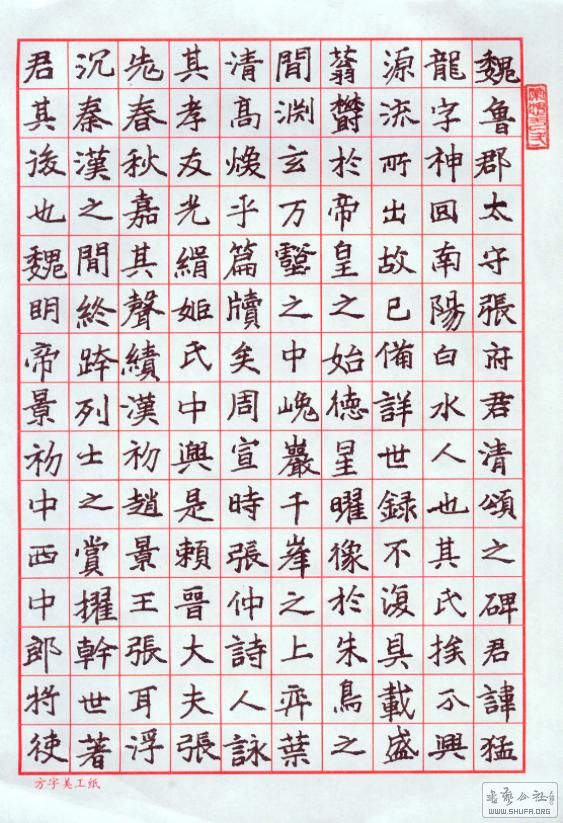 魏魯郡太守張府君清頌之碑君諱猛
龍字神囬南陽白水人也其氏族分興
源流所出故已備詳世録不復具載盛
蓊鬱於帝皇之始德星曜像於朱鳥之
間淵玄万壑之中巉巖千峯之上弈葉
清高煥乎篇牘矣周宣時張仲詩人詠
其孝友光緝姬氏中興是賴晉大夫張
老春秋嘉其聲績漢初趙景王張耳浮
沉秦漢之間終跨列士之賞擢幹世著
君其後也魏明帝景初中西中郎將使
方字美工纸
WWW.SHUFA.ORG